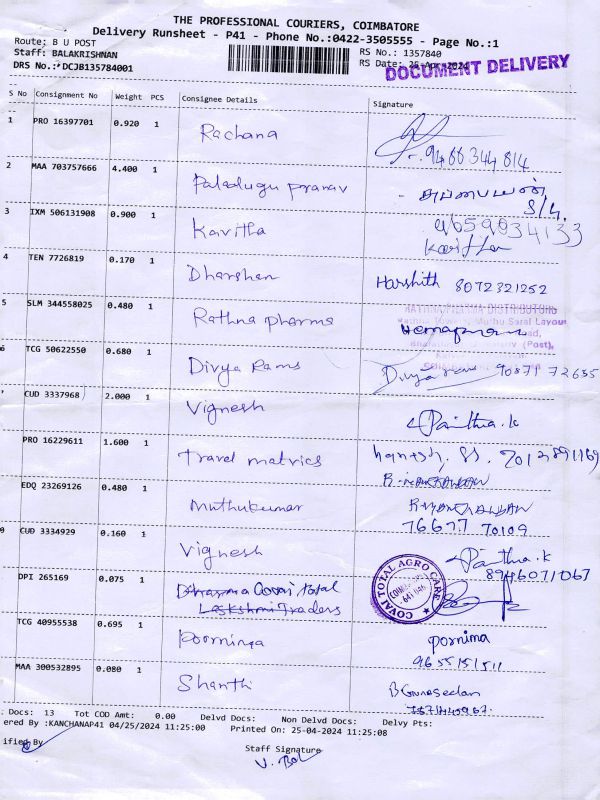 THE PROFESSIONAL COURIERS, COIMBATORE
Delivery Runsheet - P41 - Phone No.:0422-3505555 - Page No.:1
Route: B U POST
Staff: BALAKRISHNAN
DRS No.: DCJB135784001
RS No.: 1357840
RS Date: 25-Apr-2024
DOCUMENT DELIVERY
S No Consignment No Weight PCS Consignee Details Signature
1 PRO 16397701 0.920 1 Rachana
9466344814
2 MAA 703757666 4.400 1 Paladugu pranav
S/G.
3 IXM 506131908 0.900 1 Kavitha 9659034133
Kavitha
4 TEN 7726819 0.170 1 Dharshan Harshith 8072321252
5 SLM 344558025 0.480 1 Rathna pharma
RATHNA PHARMA DISTRIBUTORS
6 TCG 50622550 0.680 1 Divya Rams Divya 90871 72635
CUD 3337968 2.000 1 Vignesh Panithra.k
PRO 16229611 1.600 1 Travel matrics
EDQ 23269126 0.480 1 Muthukumar
76677 70109
CUD 3334929 0.160 1 Vignesh Panithra.k
8946071067
DPI 265169 0.075 1 Covai total
Lakshmi Traders
COVAI TOTAL AGRO CARE
TCG 40955538 0.695 1 Poornima pornima
9655151511
MAA 300532895 0.080 1 Shanthi
Docs: 13 Tot COD Amt: 0.00 Delvd Docs: Non Delvd Docs: Delvy Pts:
ered By :KANCHANAP41 04/25/2024 11:25:00 Printed On: 25-04-2024 11:25:08
ified By
Staff Signature
V. Bal